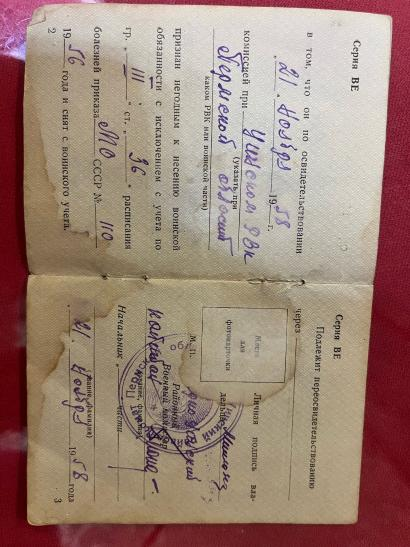 Серия ВЕ
в том, что он по освидетельствовании
„21" Ноября 1958 г.
комиссией при Уинском РВК
(указать при
Пермской области
каком РВК или воинской части)
признан негодным к несению воинской
обязанности с исключением с учета по
гр. III ст. 36 расписания
болезней приказа МО СССР № 110
1956 года и снят с воинского учета.
2
Серия ВЕ
Подлежит переосвидетельствованию
через
Место
для
фотокарточки
Личная подпись вла-
дельца
М. П.
Районный
Военный
Начальник части
капитан
(звание, фамилия)
„21" Ноября 1958 года
3